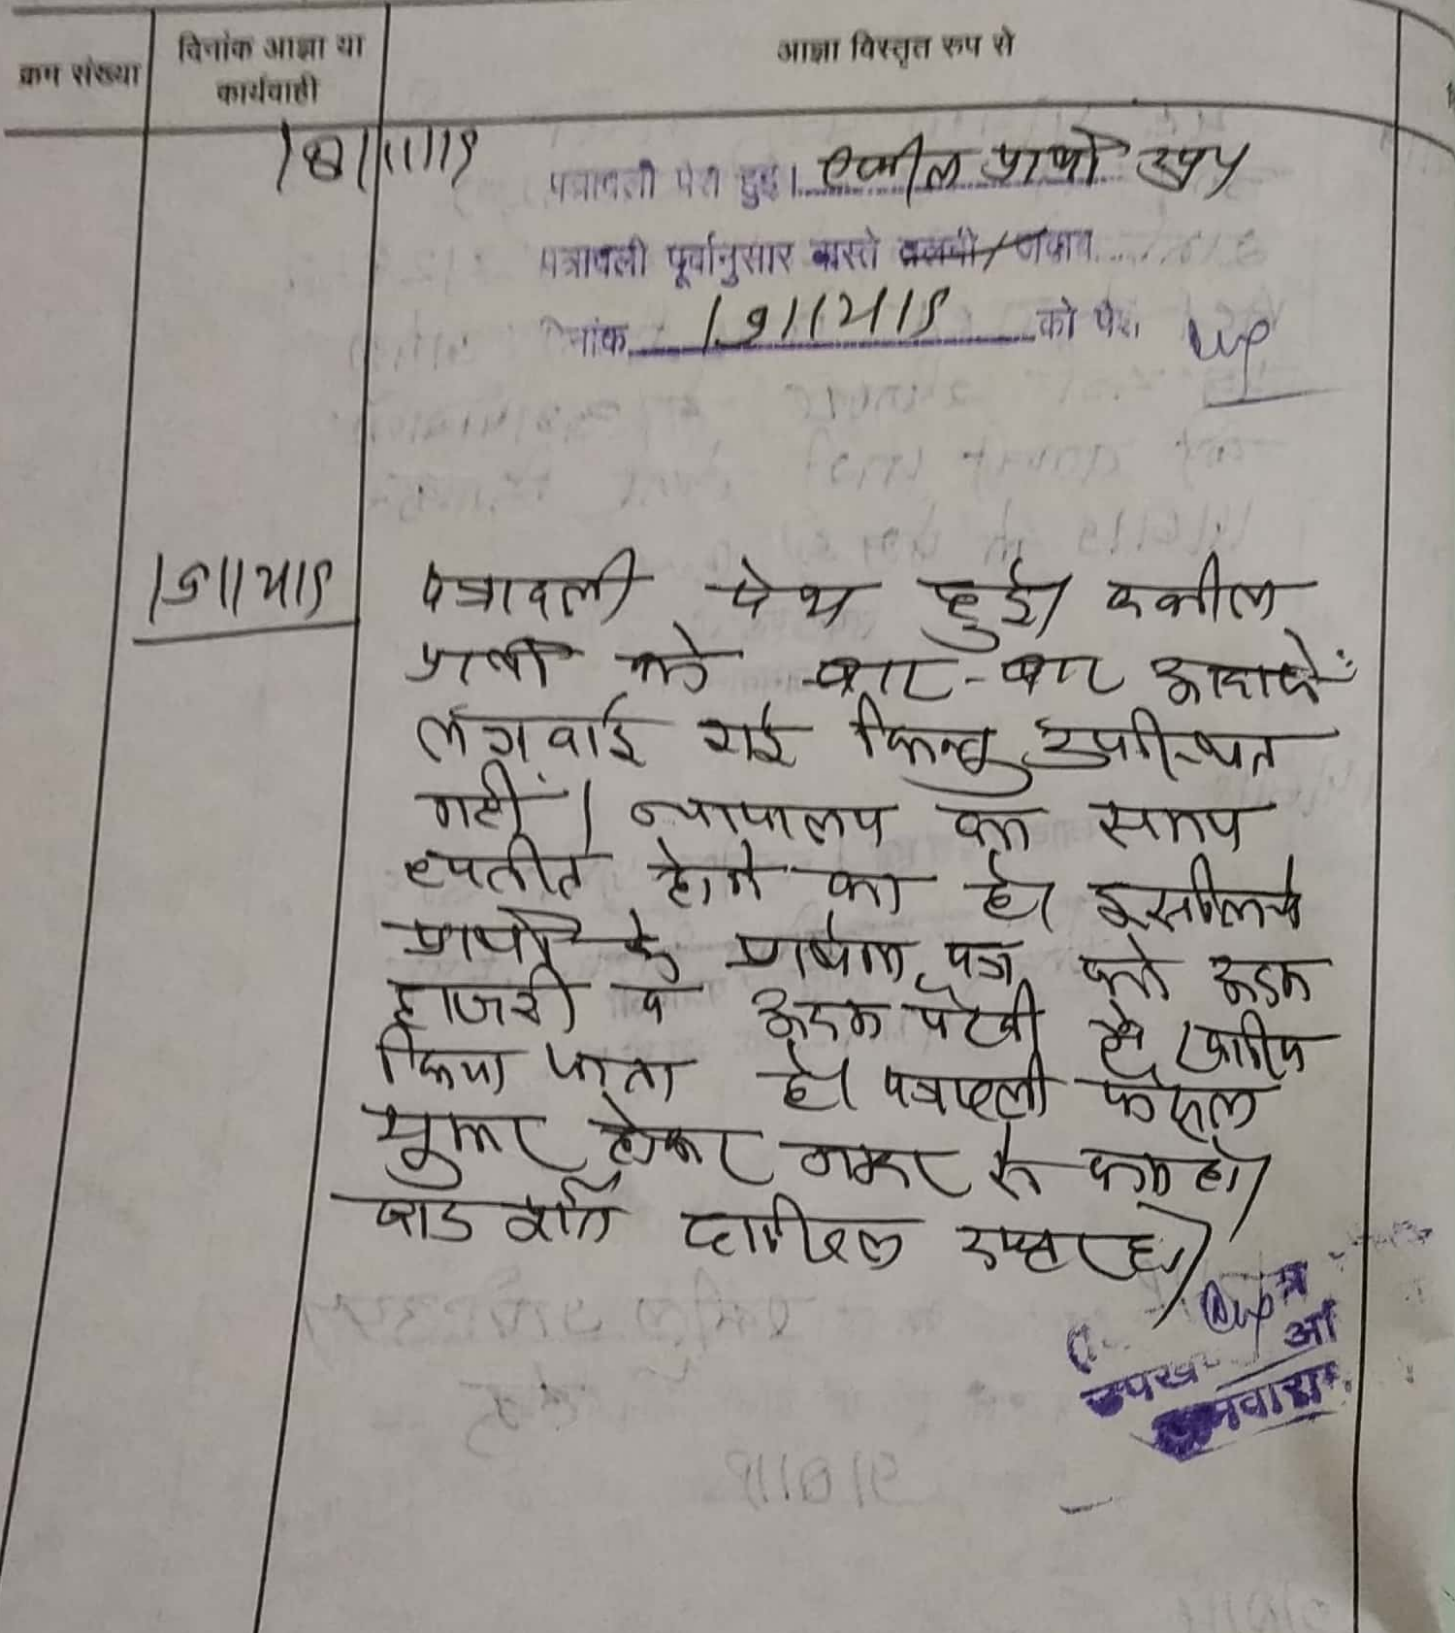 क्रम संख्या
दिनांक आज्ञा या
कार्यवाही
आज्ञा विस्तृत रुप से
पत्रावली पेश हुई। वकील प्रार्थी उप
पत्रावली पूर्वानुसार वास्ते तलबी/जवाब
दिनांक 19/12/19 को पेश।
19/12/19
पत्रावली पेश हुई। वकील
प्रार्थी को बार-बार आवाजें
लगवाई गई किन्तु उपस्थित
नहीं। न्यायालय का समय
व्यतीत होने का है। इसलिये
प्रार्थी के प्रार्थना पत्र को अदम
हाजरी व अदम पैरवी में खारिज
किया जाता है। पत्रावली फैसल
शुमार होकर नम्बर से कम हो।
बाद दाखिल दफ्तर हो।
उपख